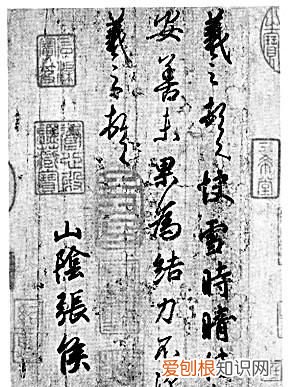 羲之頓首快雪時晴
安善未果為結力不
羲之頓首
山陰張侯
三希堂
爱刨根知识网